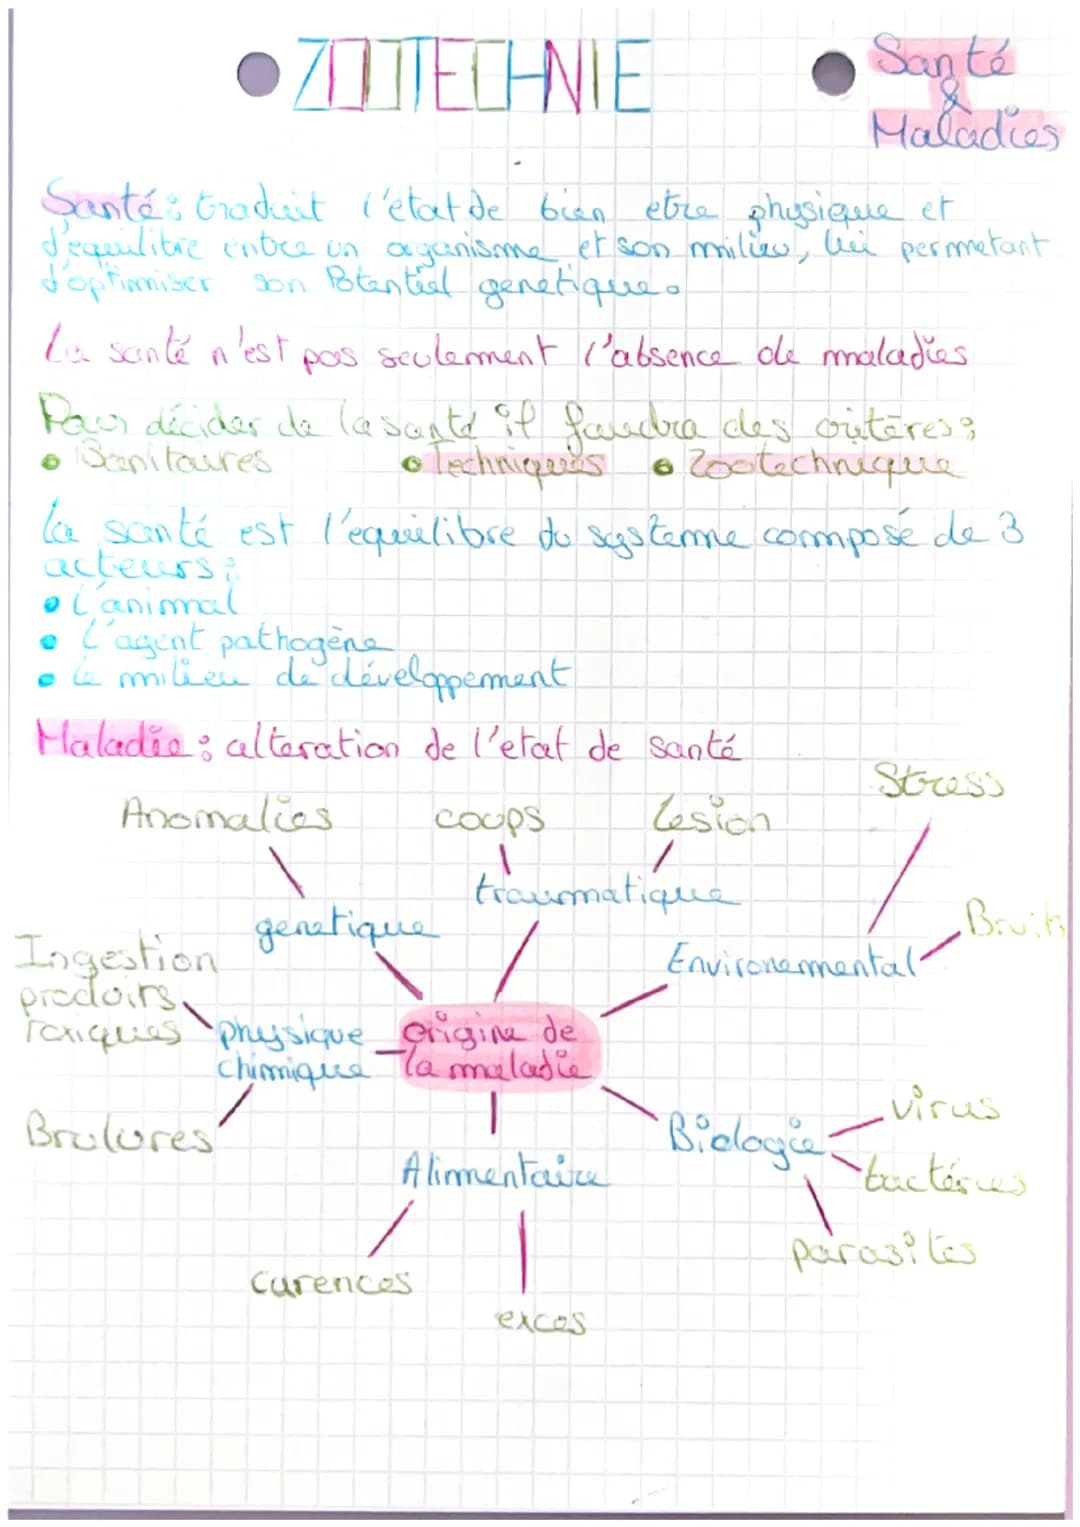 ZOOTECHNIE
Santé
&
Maladies
Santé: traduit l'état de bien etre physique et
d'equilibre entre un organisme et son milieu, lui permetant
d'optimiser son Potentiel genetique.
La santé n'est pas seulement l'absence de maladies
Pour décider de la santé il faudra des critères:
• Sanitaires • Techniques • Zootechnique
La santé est l'equilibre du systeme composé de 3
acteurs:
• L'animal
• L'agent pathogène
• Le milieu de développement
Maladie: alteration de l'etat de santé
Stress
Anomalies coups Lesion
traumatique
genetique
Bruits
Environemmental
Ingestion
produits
toxiques
physique
chimique
origine de
la maladie
Brulures
Biologie
virus
bactéries
parasites
Alimentaire
carences
exces